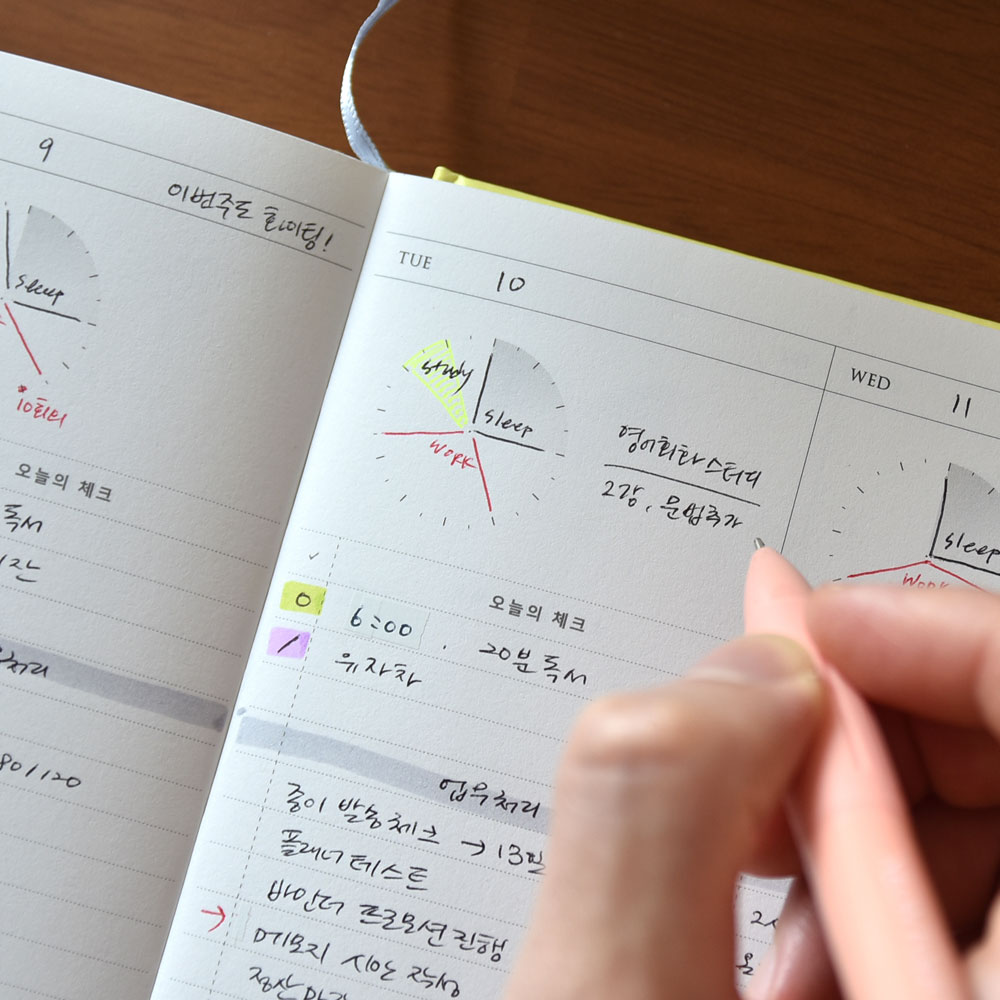 9
이번주도 화이팅!
sleep
10회의
오늘의 체크
독서
처리
80/120
TUE 10
study
sleep
work
영어회화 스터디
2강, 문법추가
✓ 오늘의 체크
O 6:00 20분 독서
/ 유자차
업무처리
종이 발송체크 → 13일
플래너 테스트
바인더 프로모션 진행
→ 메모지 시안 작성
정산마감
WED 11
sleep
work